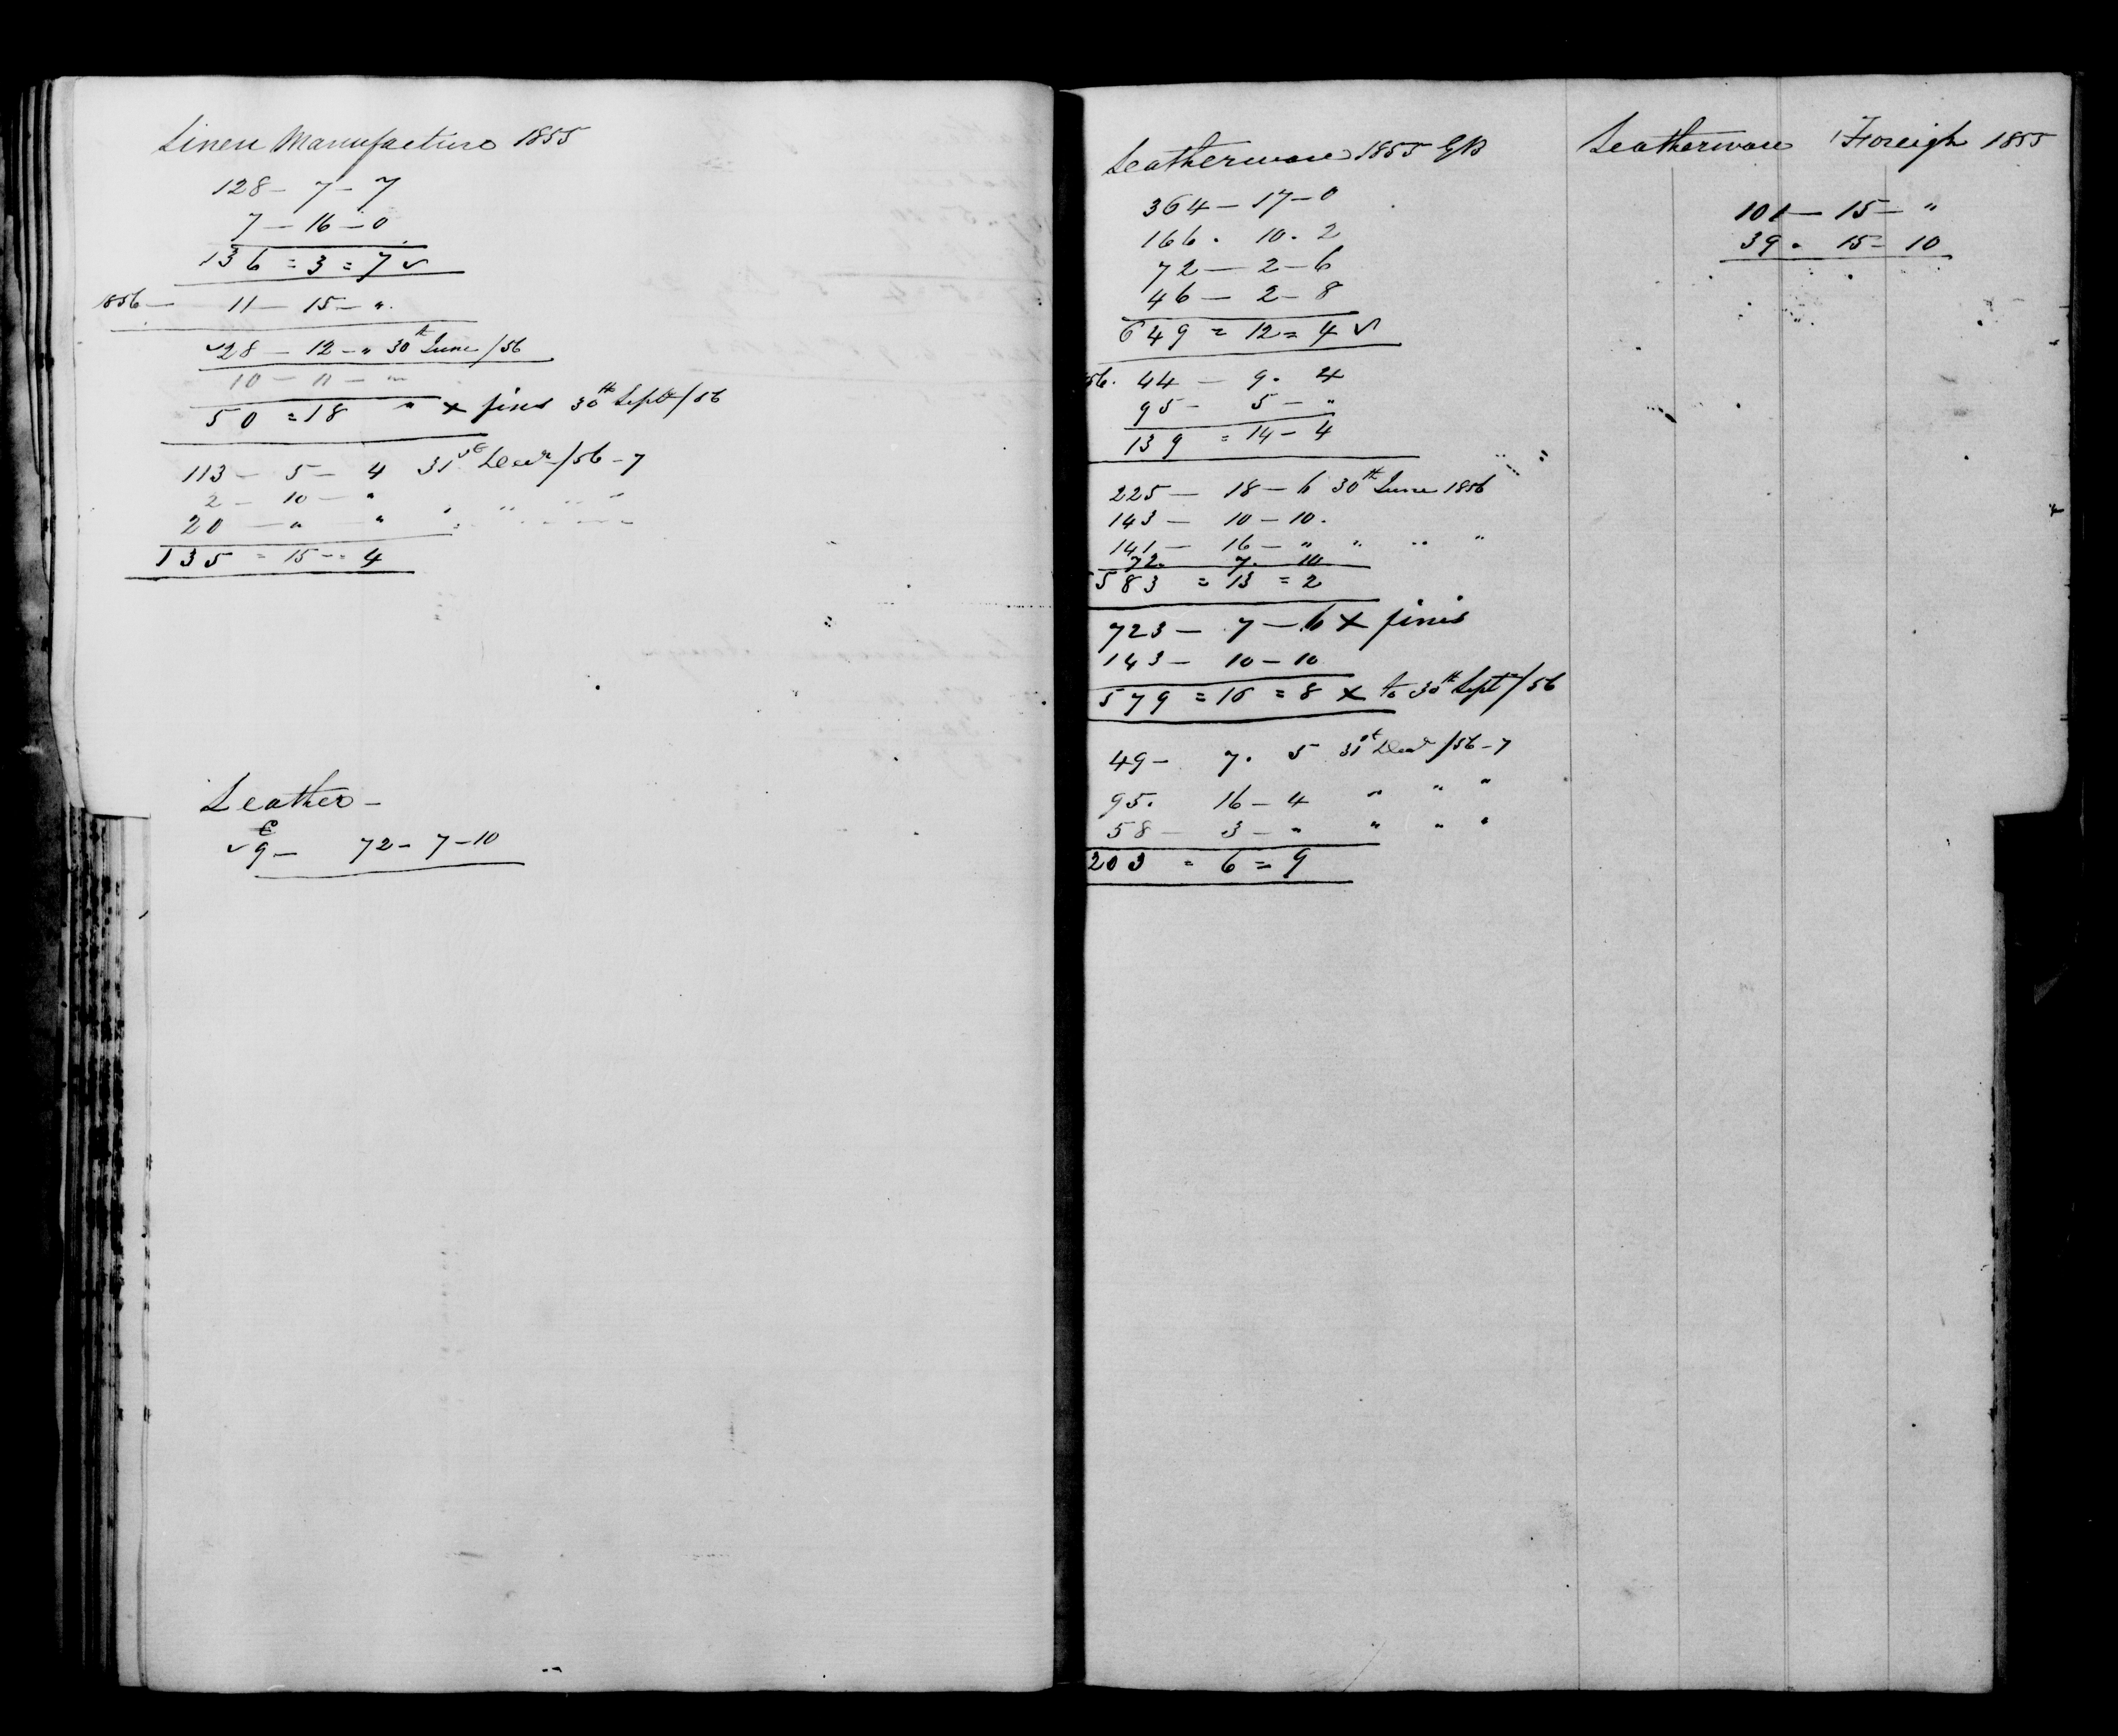 Linen Manufacture 1855
128 - 7 - 7
7 - 16 - 0
136 = 3 = 7 ✓
1856 - 11 - 15 - "
✓28 - 12 - " 30th June /56
10 - 11 - "
50 = 18 " x finis 30th Septr /56
113 - 5 - 4 31st Decr /56-7
2 - 10 - " " " " "
20 - " " " " " "
135 = 15 = 4
Leather -
£
✓ 9 - 72 - 7 - 10
Leatherware 1855 GB
364 - 17 - 0
166 . 10 . 2
72 - 2 - 6
46 - 2 - 8
649 = 12 = 4 ✓
56. 44 - 9 . 4
95 - 5 - "
139 = 14 - 4
225 - 18 - 6 30th June 1856
143 - 10 - 10 .
141 - 16 - " " " "
72. 7. 10
583 = 13 = 2
723 - 7 - 6 x finis
143 - 10 - 10
579 = 16 = 8 x to 30th Sept /56
49 - 7 . 5 31st Decr /56-7
95. 16 - 4 " " "
58 - 3 - " " " "
203 = 6 = 9
Leatherware Foreign 1855
101 - 15 - "
39 . 15 - 10